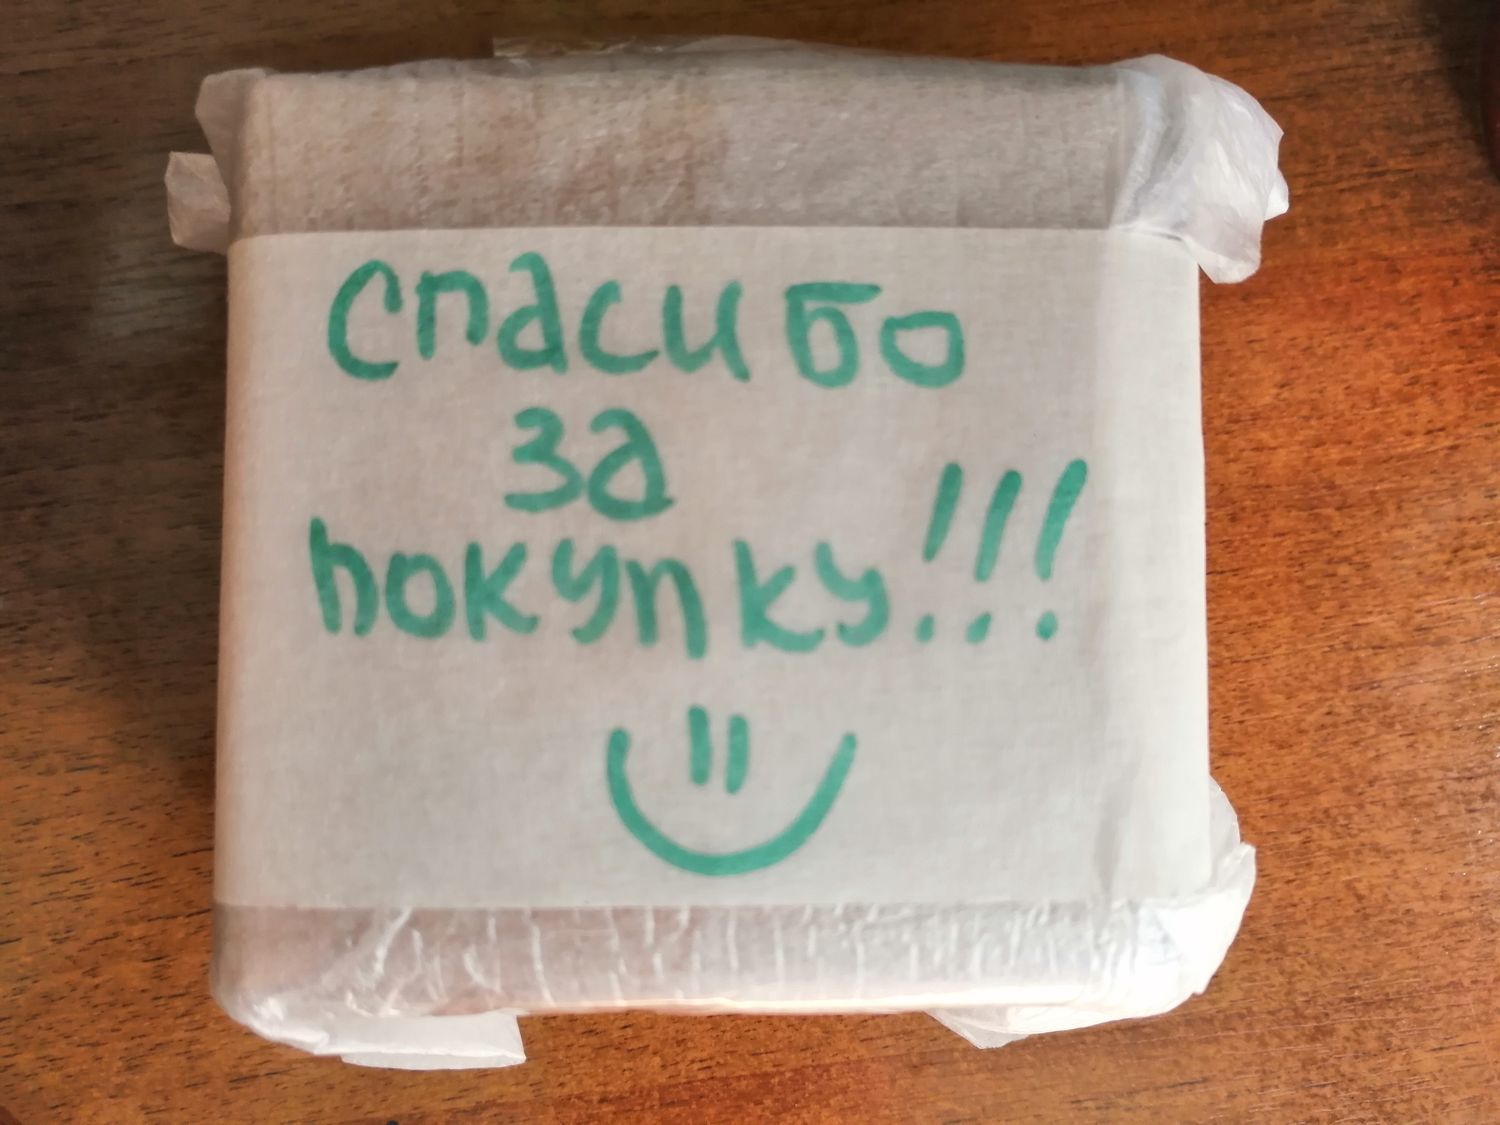 Спасибо
за
покупку!!!